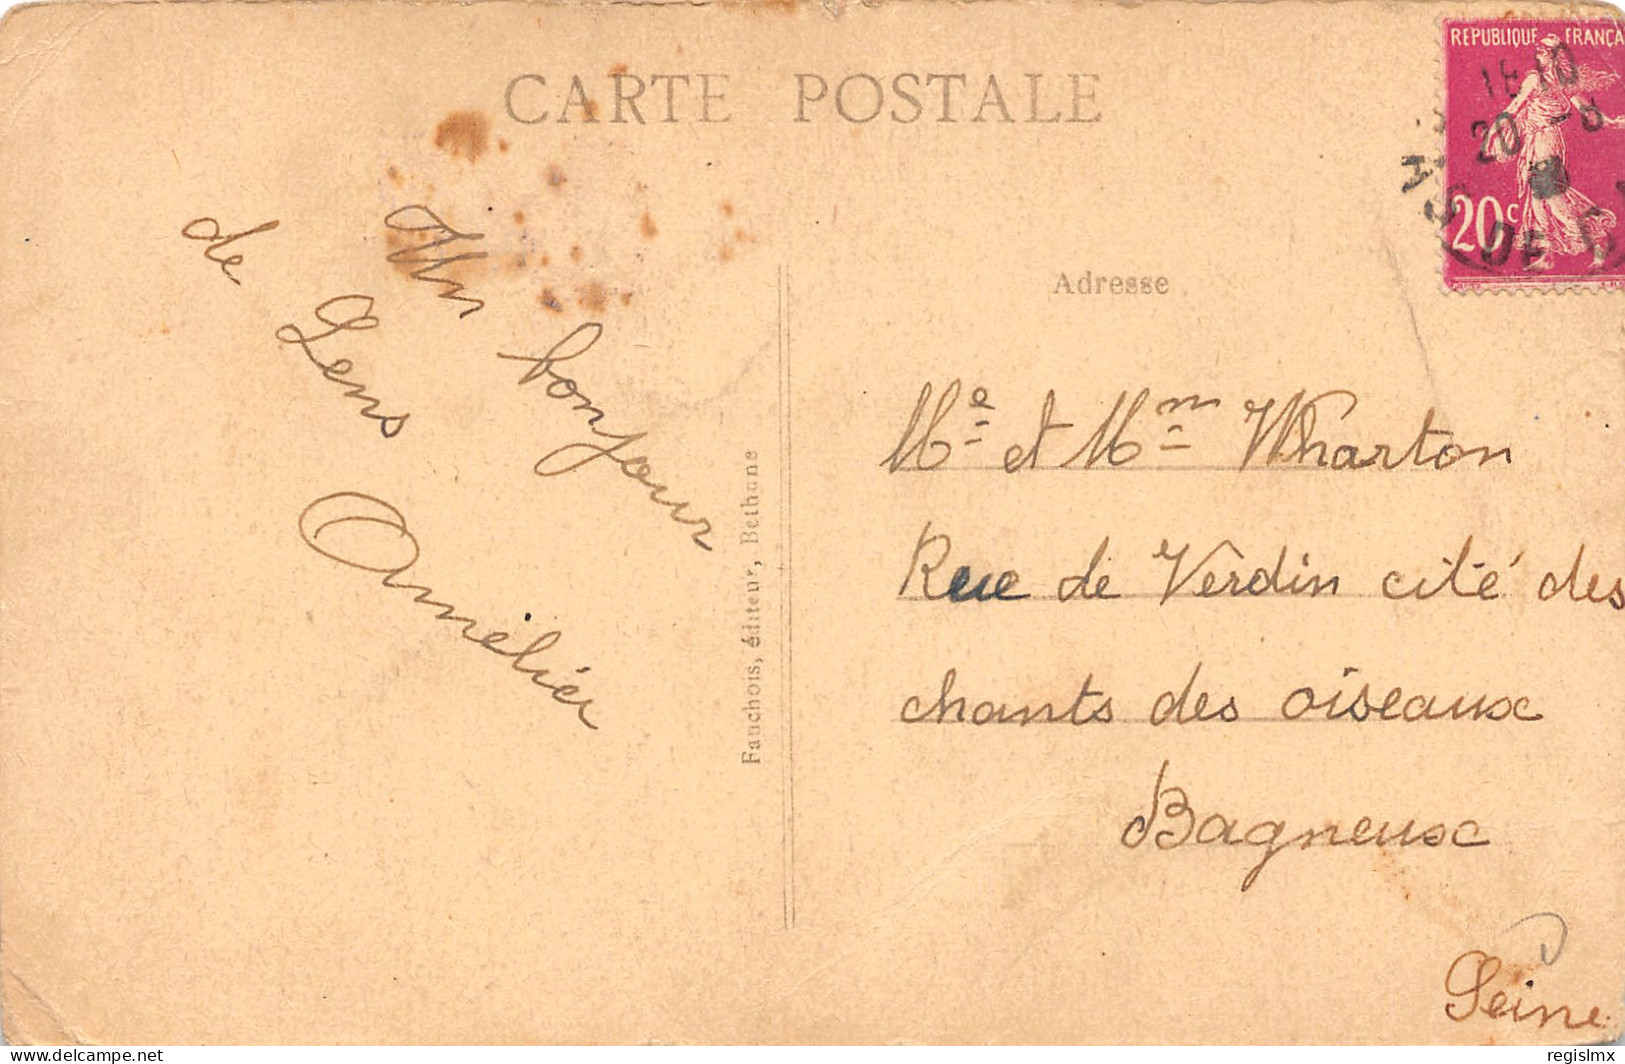 CARTE POSTALE
REPUBLIQUE FRANÇA
20c
1810
20 -8
DE
Adresse
Un bonjour
de Lens
Amélier
Fauchois, éditeur, Bethune
Me et Mm Wharton
Rue de Verdin cité des
chants des oiseaux
Bagneux
Seine
delcampe.net
regislmx